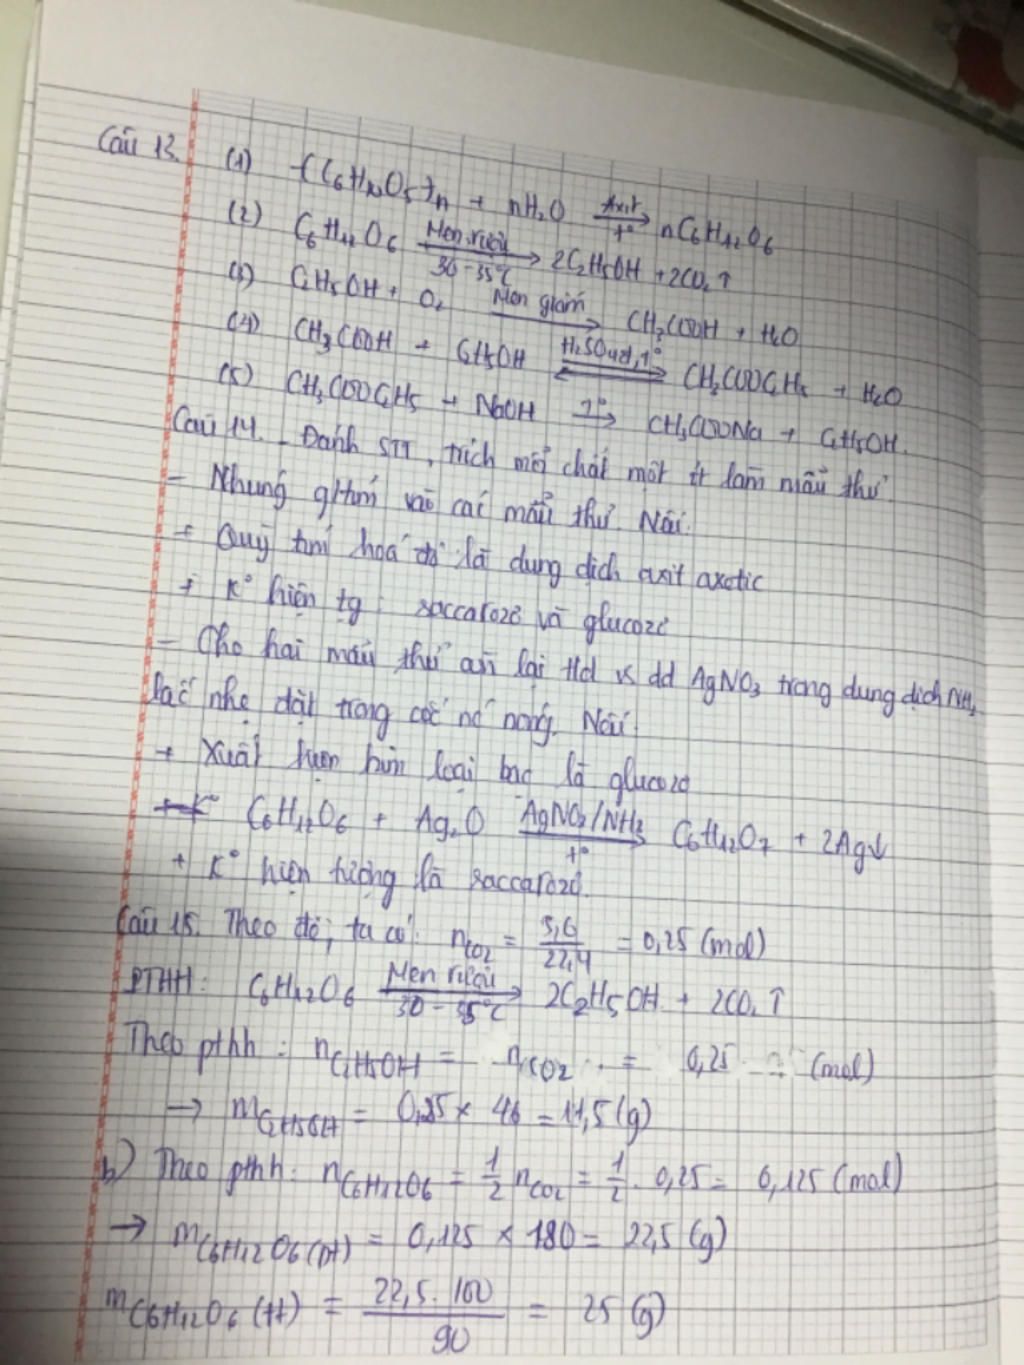 Câu 13. (1) -(C6H10O5)-n + nH2O Axit → t° nC6H12O6
(2) C6H12O6 Men rượu → 30-35°C 2C2H5OH + 2CO2↑
(3) C2H5OH + O2 Men giấm → CH3COOH + H2O
(4) CH3COOH + C2H5OH H2SO4đ, t° ⇌ CH3COOC2H5 + H2O
(5) CH3COOC2H5 + NaOH t° → CH3COONa + C2H5OH.
Câu 14. - Đánh STT, trích mỗi chất một ít làm mẫu thử.
- Nhúng vào các mẫu thử. Nếu:
+ Quỳ tím hoá đỏ là dung dịch axit axetic
+ K° hiện tg: saccarozơ và glucozơ
- Cho hai mẫu thử còn lại t/d vs dd AgNO3 trong dung dịch NH3
lắc nhẹ đặt trong cốc nc nóng. Nếu:
+ Xuất hiện kim loại bạc là glucozơ
C6H12O6 + Ag2O AgNO3/NH3 → t° C6H12O7 + 2Ag↓
+ K° hiện tượng là saccarozơ.
Câu 15. Theo đề, ta có: nCO2 = 5,6/22,4 = 0,25 (mol)
PTHH: C6H12O6 Men rượu → 30-35°C 2C2H5OH + 2CO2↑
Theo pthh: nC2H5OH = nCO2 = 0,25 (mol)
→ mC2H5OH = 0,25 × 46 = 11,5 (g)
b) Theo pthh: nC6H12O6 = 1/2 nCO2 = 1/2 . 0,25 = 0,125 (mol)
→ mC6H12O6 (pt) = 0,125 × 180 = 22,5 (g)
mC6H12O6 (tt) = 22,5 . 100/90 = 25 (g)